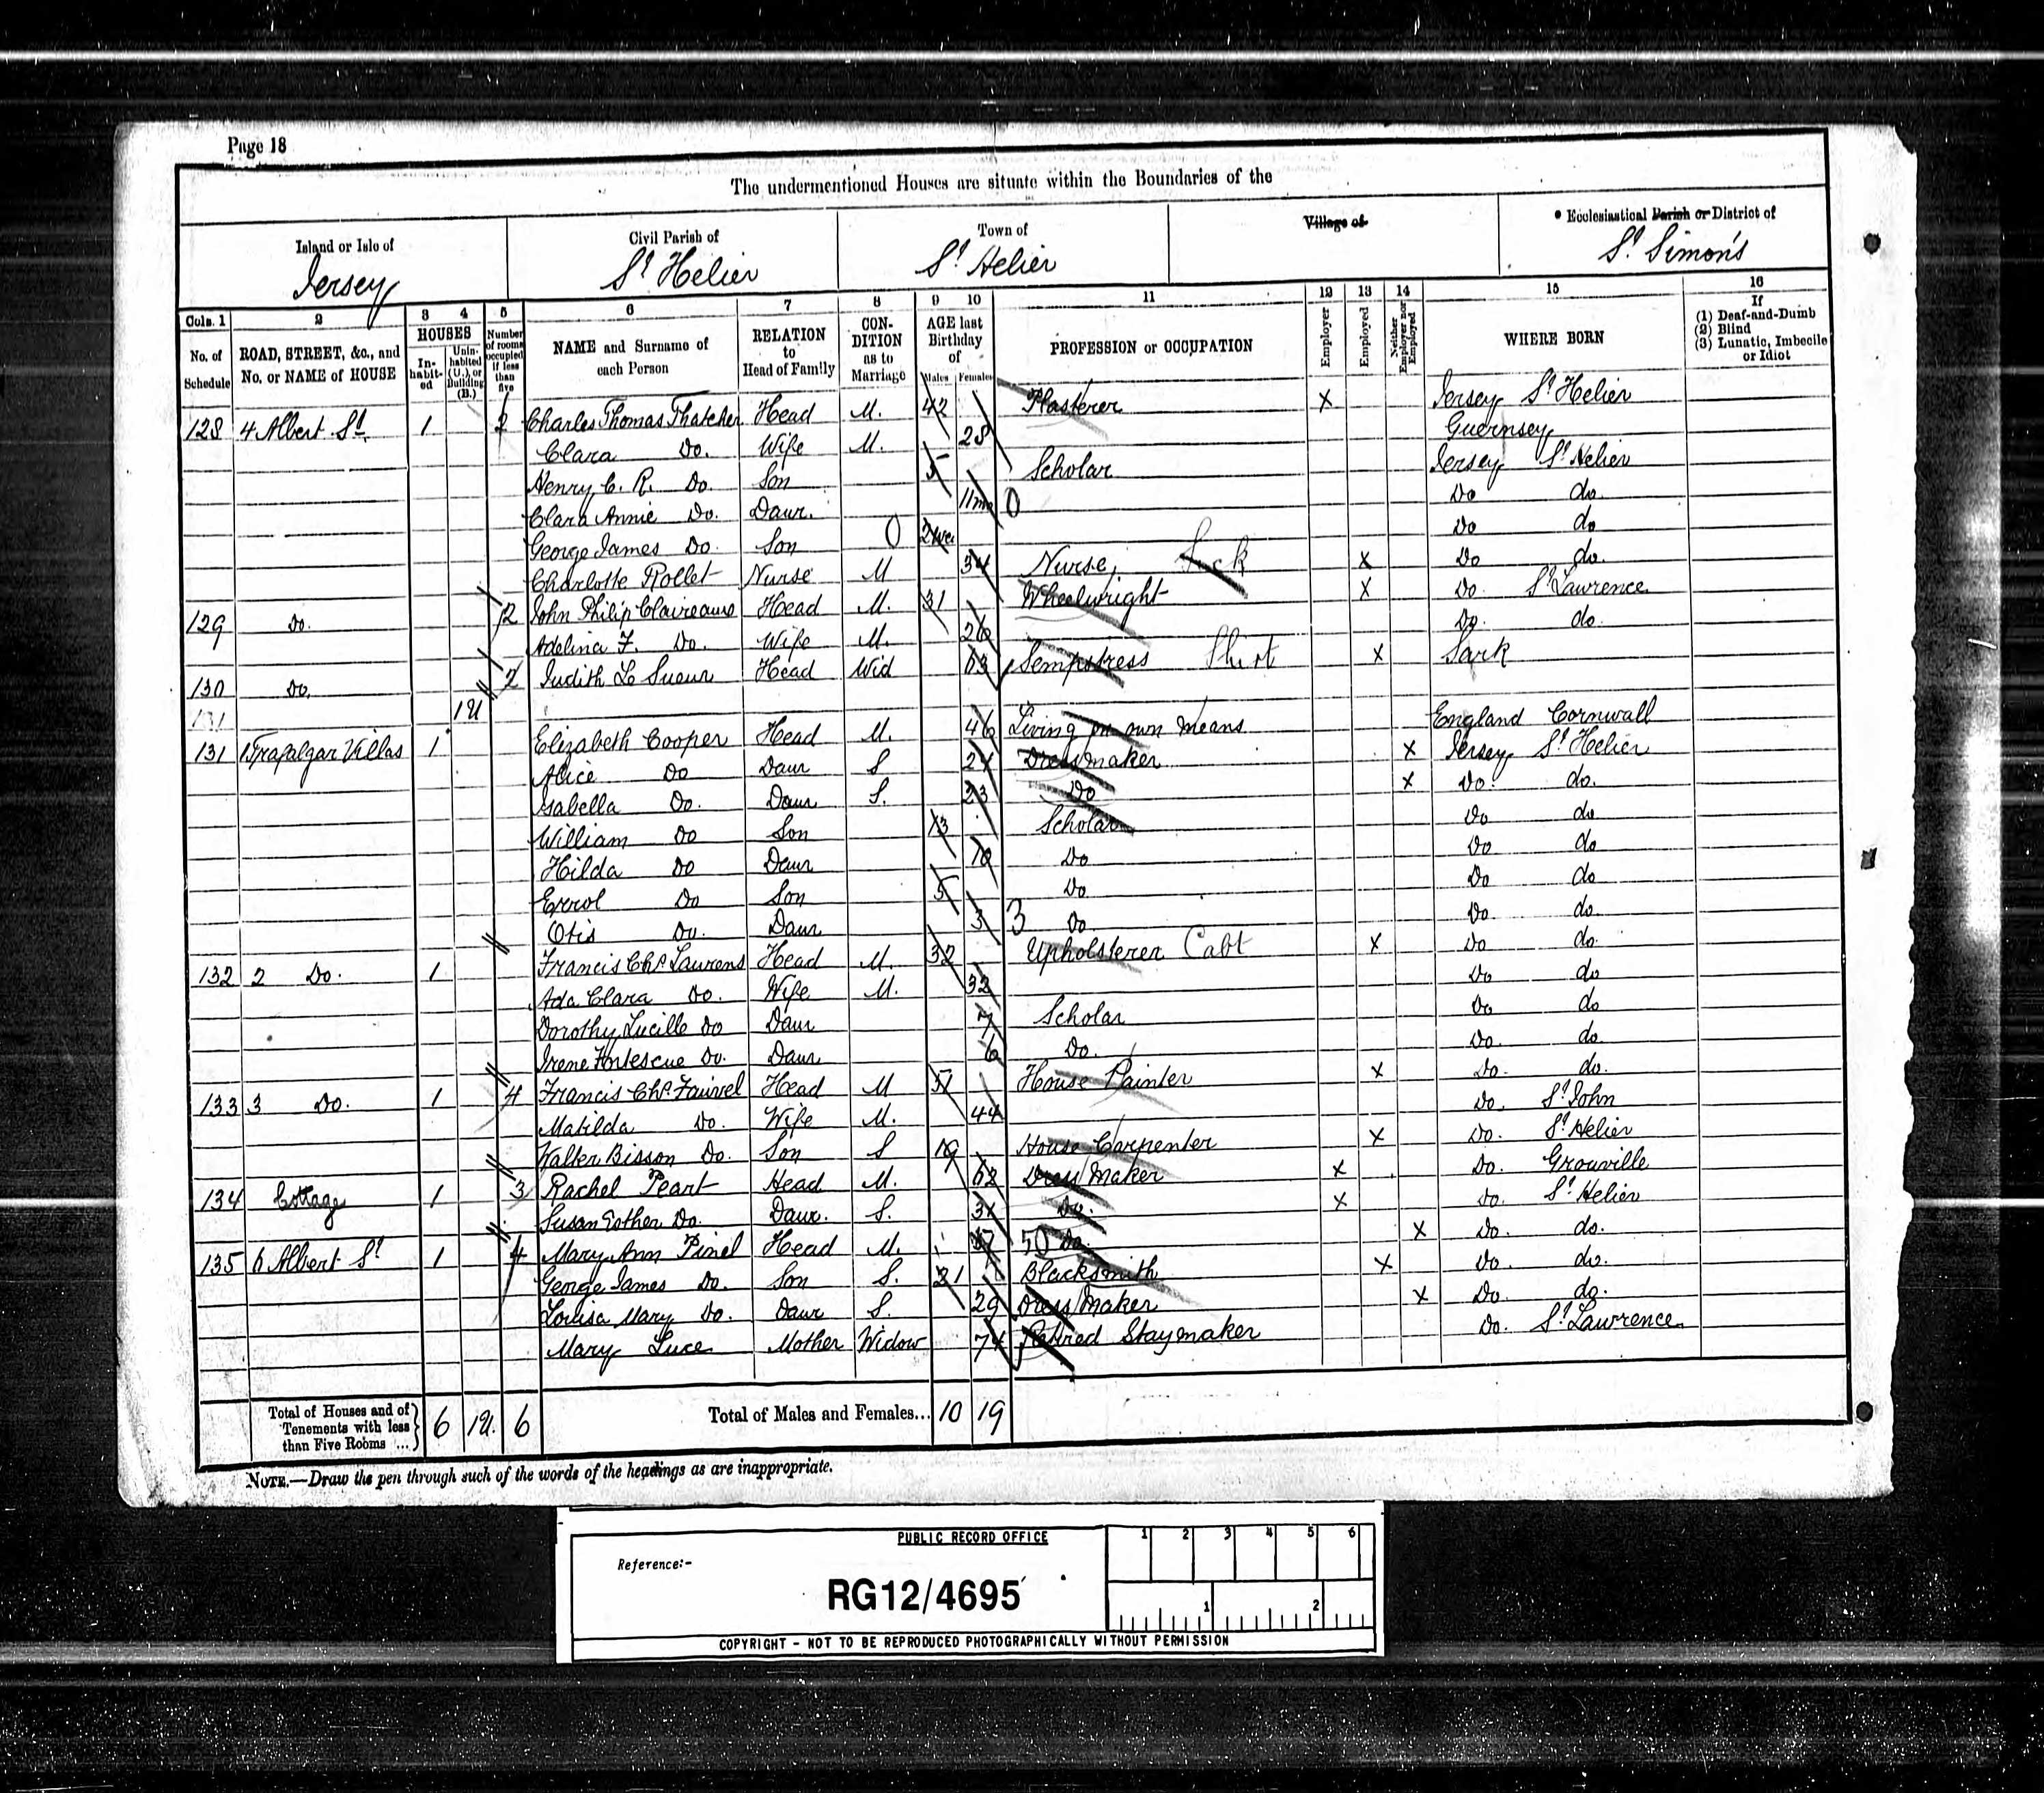 Page 18
The undermentioned Houses are situate within the Boundaries of the
Island or Isle of Jersey
Civil Parish of St Helier
Town of St Helier
Village of
Ecclesiastical Parish or District of St Simon's
Cols. 1 2 3 4 5 6 7 8 9 10 11 12 13 14 15 16
No. of Schedule
ROAD, STREET, &c., and No. or NAME of HOUSE
HOUSES
In-habit-ed
Unin-habited (U.), or Building (B.)
Number of rooms occupied if less than five
NAME and Surname of each Person
RELATION to Head of Family
CON-DITION as to Marriage
AGE last Birthday of
Males Females
PROFESSION or OCCUPATION
Employer
Employed
Neither Employer nor Employed
WHERE BORN
If (1) Deaf-and-Dumb (2) Blind (3) Lunatic, Imbecile or Idiot
128 4 Albert St. 1 2 Charles Thomas Thatcher Head M. 42 Plasterer X Jersey St Helier
Clara Do. Wife M. 28 Guernsey
Henry C. R. Do. Son 5 Scholar Jersey St Helier
Clara Annie Do. Daur. 11mo 0 Do do.
George James Do. Son 0 Do do
Charlotte Rollet Nurse M 34 Nurse, Sick X Do do.
129 Do. 2 John Philip Claireaux Head M. 31 Wheelwright X Do. St Lawrence
Adelina F. Do. Wife M. 26 Do. do.
130 Do. 2 Judith Le Sueur Head Wid 63 Sempstress Shirt X Sark
131 1U
131 1 Trafalgar Villas 1 Elizabeth Cooper Head M. 46 Living on own means England Cornwall
Alice Do Daur S 24 Dressmaker X Jersey St Helier
Isabella Do. Daur S. 23 Do X Do. do.
William Do Son 13 Scholar Do do
Hilda Do Daur 10 Do Do do
Errol Do Son 5 Do Do do
Otis Do. Daur 3 3 Do. Do. do.
132 2 Do. 1 Francis Chs. Laurens Head M. 32 Upholsterer Cabt X Do do.
Ada Clara Do. Wife M. 32 Do do
Dorothy Lucille Do Daur 7 Scholar Do do
Irene Fortescue Do. Daur 6 Do. Do. do
133 3 Do. 1 4 Francis Chs. Fauvel Head M 51 House Painter X Do. do.
Matilda Do. Wife M. 44 Do. St John
Walter Bisson Do. Son S 19 House Carpenter X Do. St Helier
134 Cottage 1 3 Rachel Peart Head M. 62 Dress Maker X Do. Grouville
Susan Esther Do. Daur. S. 31 Do. X Do. St Helier
135 6 Albert St 1 4 Mary Ann Pinel Head M. 50 Do. X Do. do.
George James Do. Son S. 21 Blacksmith X Do. do.
Louisa Mary Do. Daur S. 29 Dress Maker X Do do.
Mary Luce Mother Widow 74 Retired Staymaker Do. St Lawrence
Total of Houses and of Tenements with less than Five Rooms ... 6 1U. 6
Total of Males and Females... 10 19
NOTE.—Draw the pen through such of the words of the headings as are inappropriate.
PUBLIC RECORD OFFICE
Reference:-
RG12/4695
1 2 3 4 5 6
1 2
COPYRIGHT - NOT TO BE REPRODUCED PHOTOGRAPHICALLY WITHOUT PERMISSION